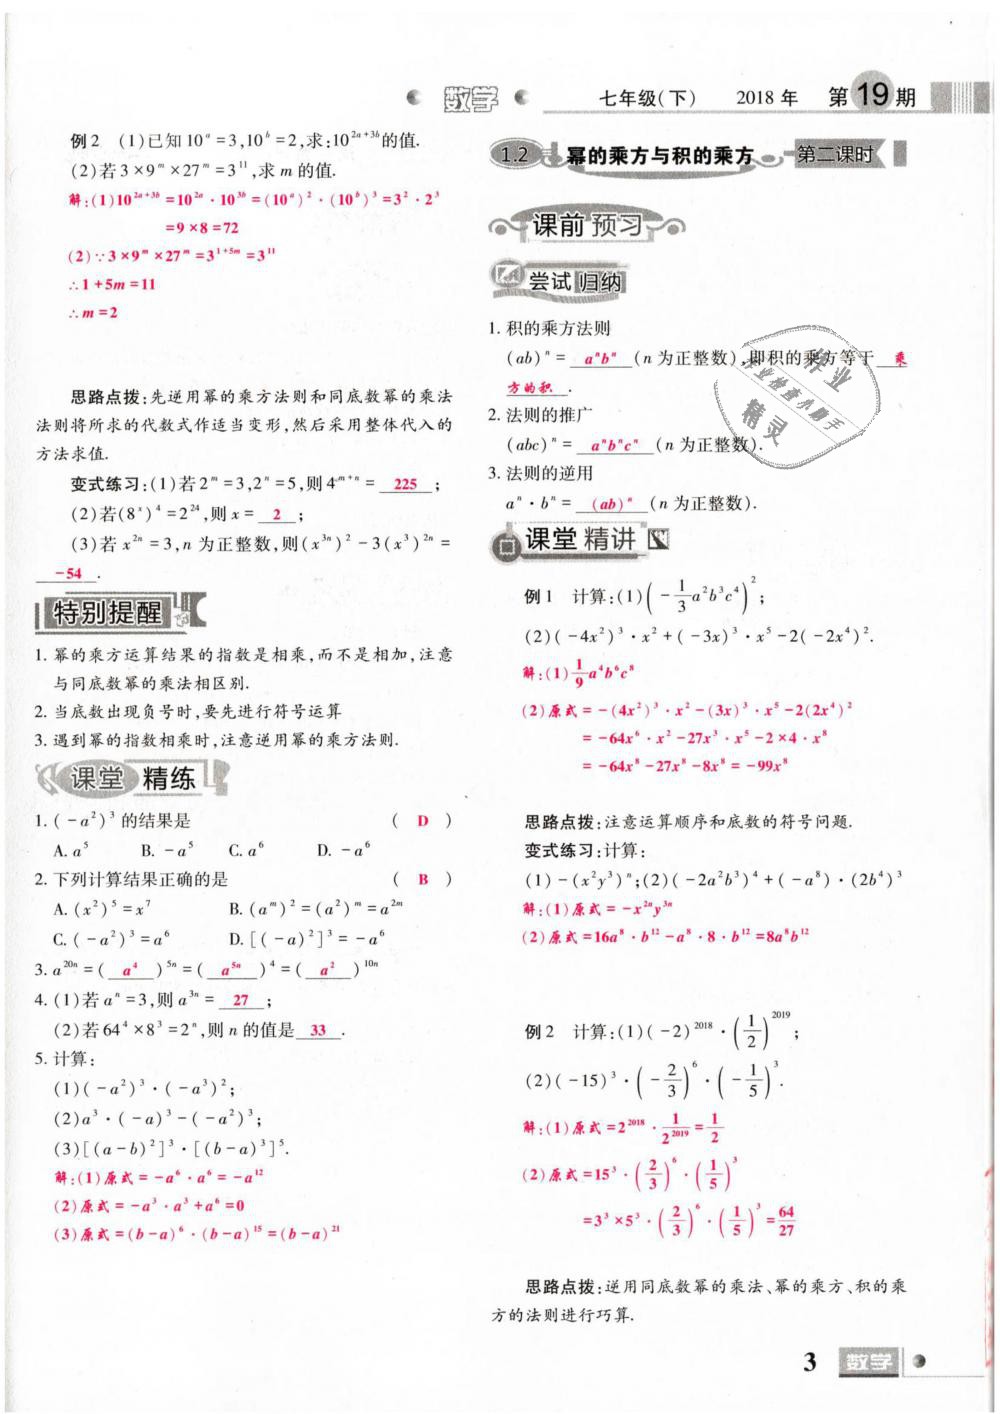 数学 七年级(下) 2018年 第19期
例2 (1)已知10^a=3,10^b=2,求:10^{2a+3b}的值.
(2)若3×9^m×27^m=3^{11},求m的值.
解:(1)10^{2a+3b}=10^{2a}·10^{3b}=(10^a)^2·(10^b)^3=3^2·2^3
=9×8=72
(2)∵3×9^m×27^m=3^{1+5m}=3^{11}
∴1+5m=11
∴m=2
思路点拨:先逆用幂的乘方法则和同底数幂的乘法
法则将所求的代数式作适当变形,然后采用整体代入的
方法求值.
变式练习:(1)若2^m=3,2^n=5,则4^{m+n}=225;
(2)若(8^x)^4=2^{24},则x=2;
(3)若x^{2n}=3,n为正整数,则(x^{3n})^2-3(x^3)^{2n}=
-54.
特别提醒
1. 幂的乘方运算结果的指数是相乘,而不是相加,注意
与同底数幂的乘法相区别.
2. 当底数出现负号时,要先进行符号运算
3. 遇到幂的指数相乘时,注意逆用幂的乘方法则.
课堂 精练
1. (-a^2)^3的结果是 ( D )
A. a^5 B. -a^5 C. a^6 D. -a^6
2. 下列计算结果正确的是 ( B )
A. (x^2)^5=x^7 B. (a^m)^2=(a^2)^m=a^{2m}
C. (-a^2)^3=a^6 D. [(-a)^2]^3=-a^6
3. a^{20n}=(a^4)^{5n}=(a^{5n})^4=(a^2)^{10n}
4. (1)若a^n=3,则a^{3n}=27;
(2)若64^4×8^3=2^n,则n的值是33.
5. 计算:
(1)(-a^2)^3·(-a^3)^2;
(2)a^3·(-a)^3-(-a^2)^3;
(3)[(a-b)^2]^3·[(b-a)^3]^5.
解:(1)原式=-a^6·a^6=-a^{12}
(2)原式=-a^3·a^3+a^6=0
(3)原式=(b-a)^6·(b-a)^{15}=(b-a)^{21}
1.2 幂的乘方与积的乘方 第二课时
课前 预习
尝试 归纳
1. 积的乘方法则
(ab)^n=a^nb^n(n为正整数),即积的乘方等于乘
方的积.
2. 法则的推广
(abc)^n=a^nb^nc^n(n为正整数).
3. 法则的逆用
a^n·b^n=(ab)^n(n为正整数).
作业
作业检查小助手
精灵
课堂 精讲
例1 计算:(1)(-1/3a^2b^3c^4)^2;
(2)(-4x^2)^3·x^2+(-3x)^3·x^5-2(-2x^4)^2.
解:(1)1/9a^4b^6c^8
(2)原式=-(4x^2)^3·x^2-(3x)^3·x^5-2(2x^4)^2
=-64x^6·x^2-27x^3·x^5-2×4·x^8
=-64x^8-27x^8-8x^8=-99x^8
思路点拨:注意运算顺序和底数的符号问题.
变式练习:计算:
(1)-(x^2y^3)^n;(2)(-2a^2b^3)^4+(-a^8)·(2b^4)^3
解:(1)原式=-x^{2n}y^{3n}
(2)原式=16a^8·b^{12}-a^8·8·b^{12}=8a^8b^{12}
例2 计算:(1)(-2)^{2018}·(1/2)^{2019};
(2)(-15)^3·(-2/3)^6·(-1/5)^3.
解:(1)原式=2^{2018}·1/2^{2019}=1/2
(2)原式=15^3·(2/3)^6·(1/5)^3
=3^3×5^3·(2/3)^6·(1/5)^3=64/27
思路点拨:逆用同底数幂的乘法、幂的乘方、积的乘
方的法则进行巧算.
3 数学